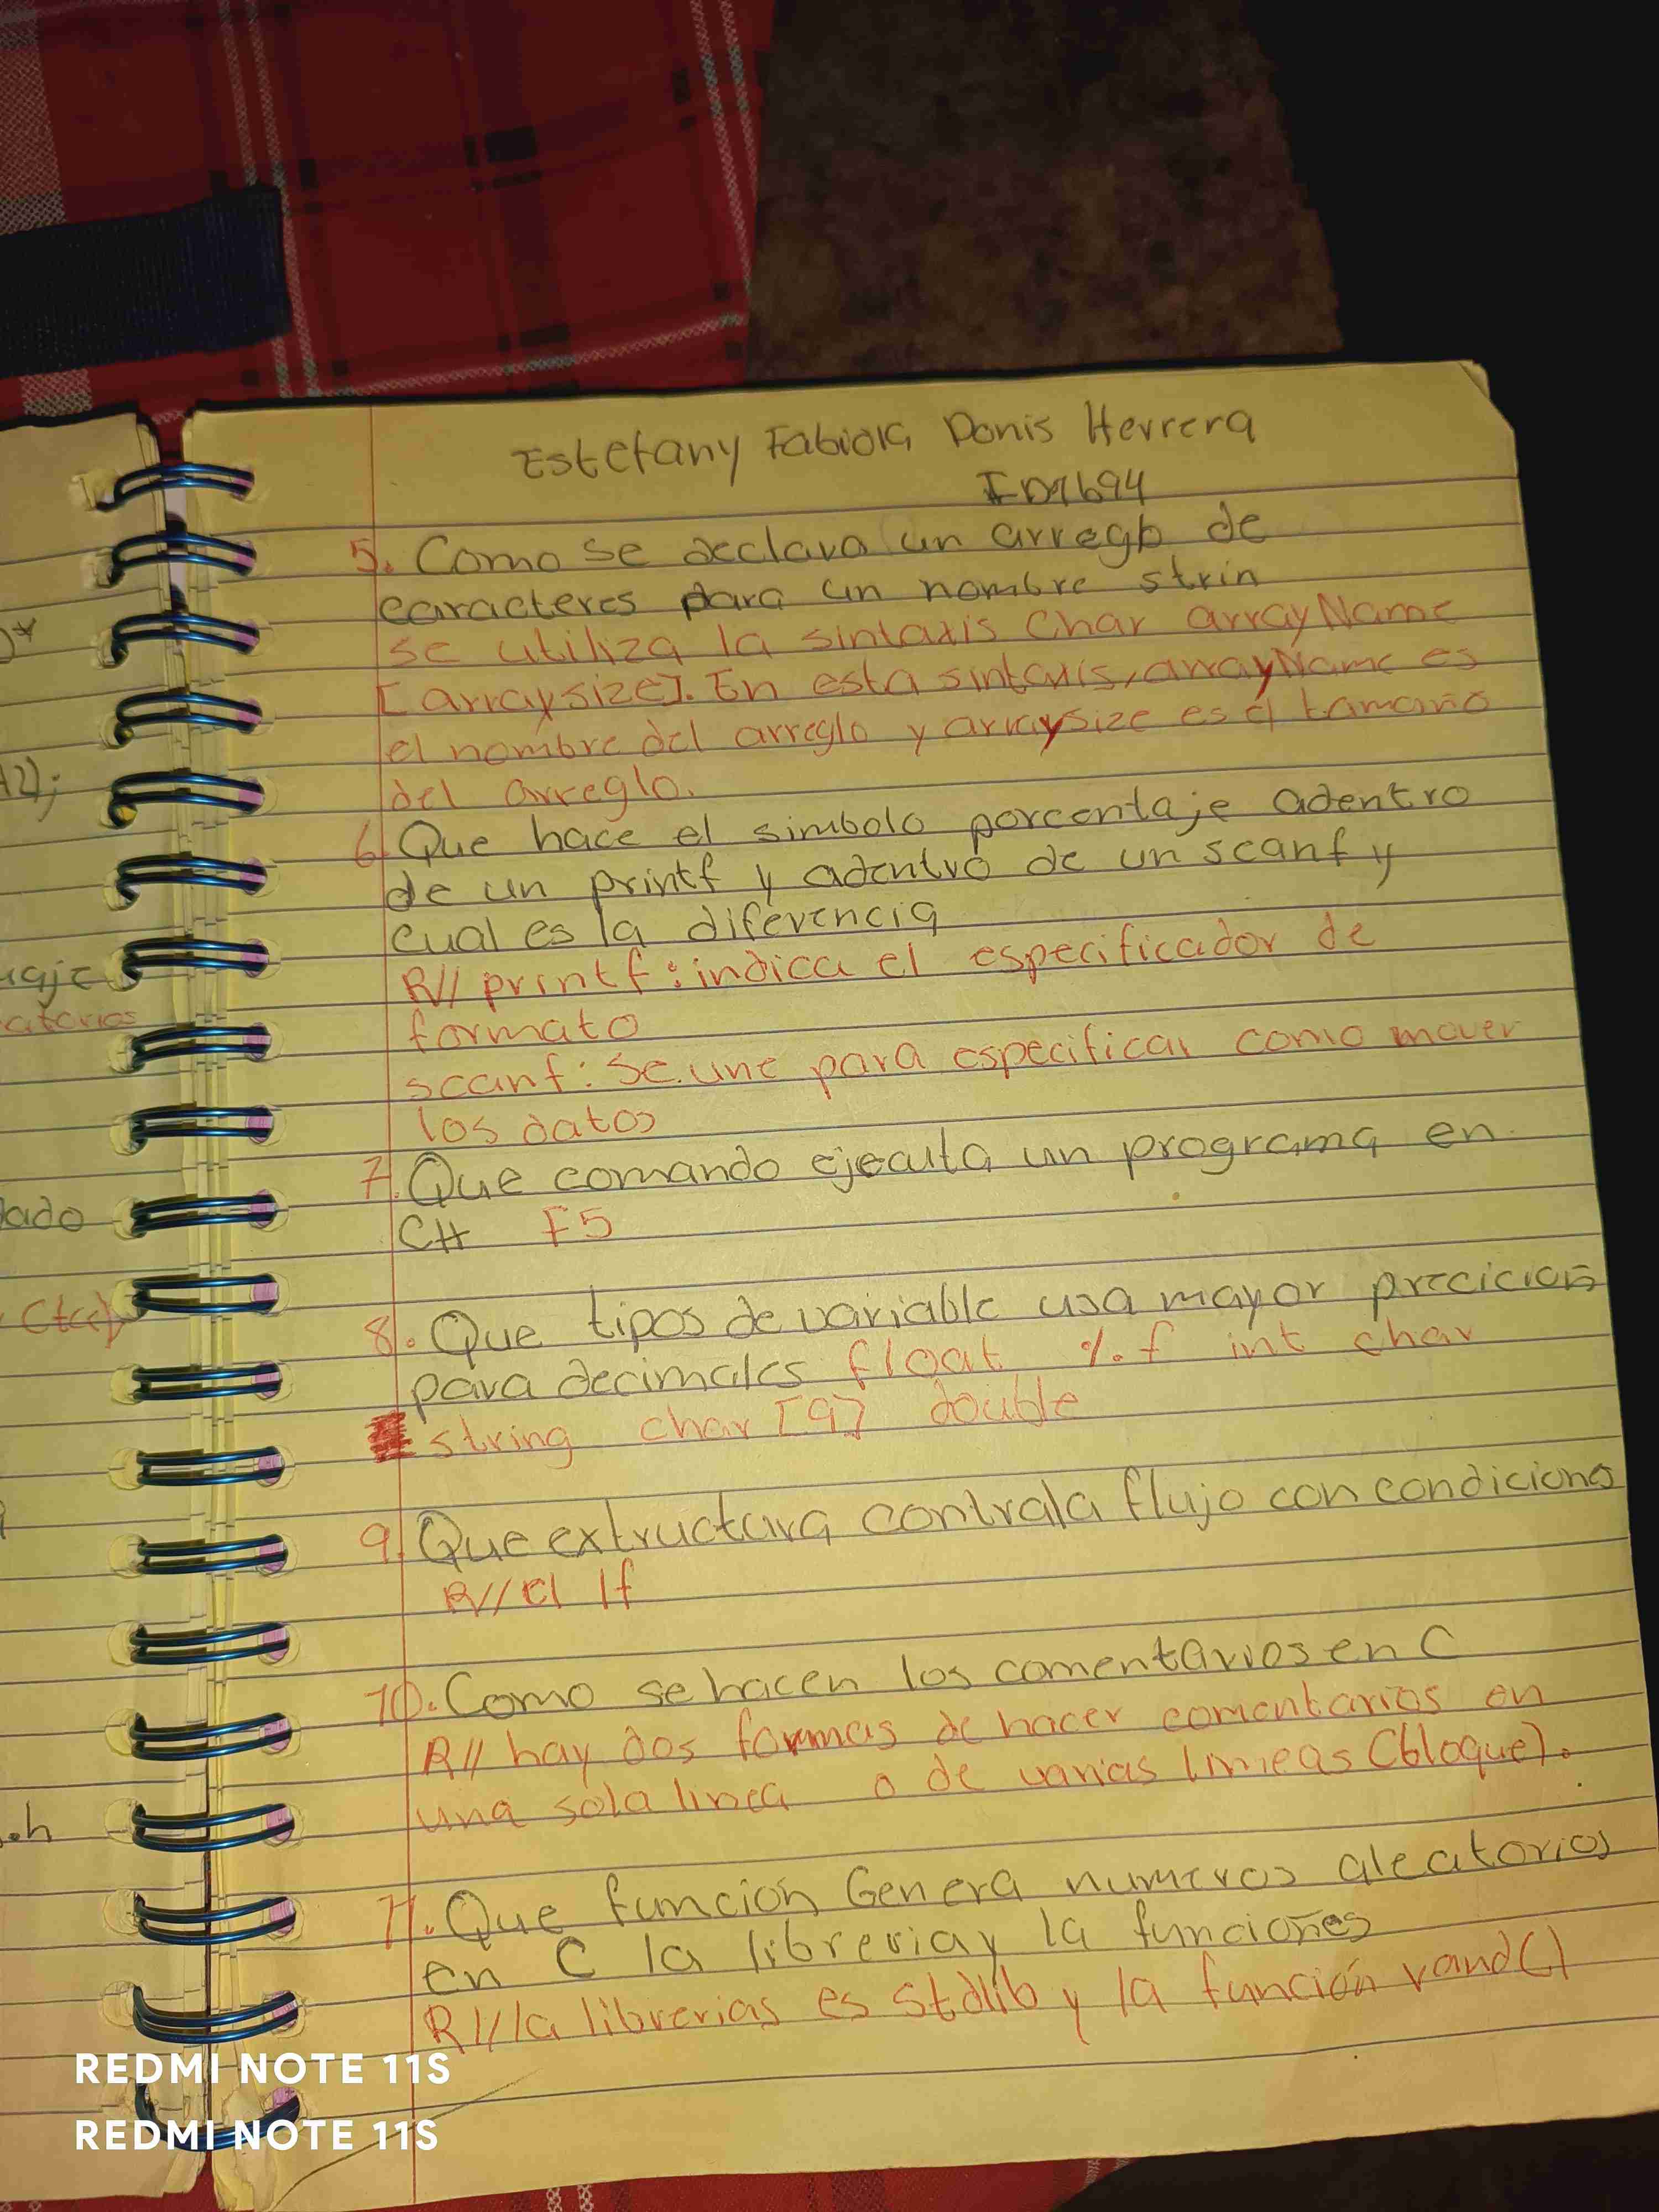 Estefany Fabiola Donis Herrera
5. Como se declara un arreglo de
caracteres para un nombre strin
se utiliza la sintaxis Char arrayName
[arraysize]. En esta sintaxis, arrayName es
el nombre del arreglo y arraysize es el tamaño
del arreglo.
6. Que hace el simbolo porcentaje adentro
de un printf y adentro de un scanf y
cual es la diferencia
R// printf: indica el especificador de
formato
scanf: Se une para especificar como mover
los datos
7. Que comando ejecuta un programa en
C++ F5
8. Que tipos de variable usa mayor precicion
para decimales float %.f int char
string char [9] double
9. Que extructura contrala flujo con condiciones
R// el If
10. Como se hacen los comentarios en C
R// hay dos formas de hacer comentarios en
una sola linea o de varias lineas (bloque).
11. Que función Genera numeros aleatorios
en C la libreria y la funciones
R// la librerias es stdlib y la función rand()
)*
12);
uaje
atorios
lado
.h
REDMI NOTE 11S
REDMI NOTE 11S